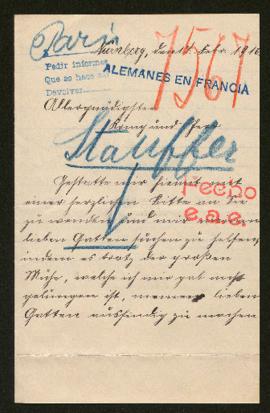 Paris
Nürnberg, den 1916
Pedir informes
Que se hace
Devolver
ALEMANES EN FRANCIA
7567
Allergnädigster
König und Herr
Stauffer
Gestatte mir hiemit mit
einer herzlichen Bitte an Sie
zu wenden und mir meinen
Fecho
e.a.e.
lieben Gatten suchen zu helfen,
indem es trotz der großen
Mühe, welche ich mir gab nicht
gelungen ist, meinen lieben
Gatten ausfindig zu machen